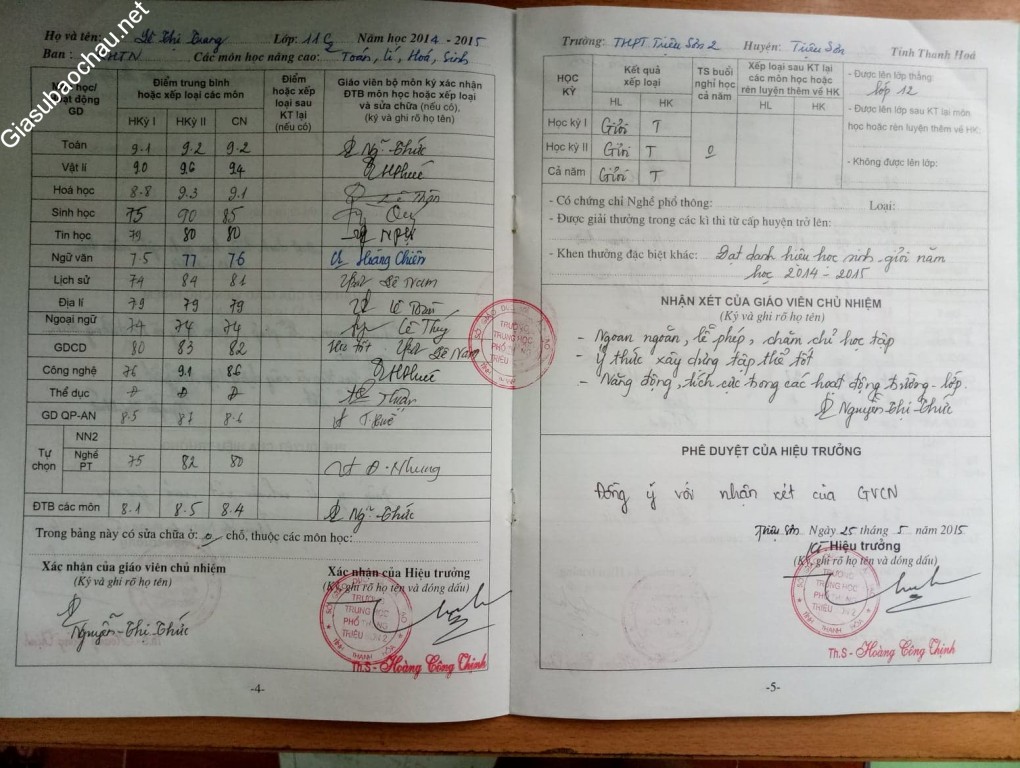 Giasubaochau.net
Họ và tên: Lê Thị Trang Lớp: 11C2 Năm học 2014 - 2015
Ban: KHTN Các môn học nâng cao: Toán, lí, Hoá, Sinh
Môn học/ Hoạt động GD
Điểm trung bình hoặc xếp loại các môn
HKỳ I HKỳ II CN
Điểm hoặc xếp loại sau KT lại (nếu có)
Giáo viên bộ môn ký xác nhận ĐTB môn học hoặc xếp loại và sửa chữa (nếu có), (ký và ghi rõ họ tên)
Toán 9.1 9.2 9.2 Ng~ Thức
Vật lí 9.0 9.6 9.4
Hoá học 8.8 9.3 9.1
Sinh học 7.5 9.0 8.5
Tin học 7.9 8.0 8.0
Ngữ văn 7.5 7.7 7.6 Hoàng Chiên
Lịch sử 7.9 8.4 8.1 Lê Nam
Địa lí 7.9 7.9 7.9
Ngoại ngữ 7.4 7.4 7.4 Lê Thúy
GDCD 8.0 8.3 8.2 Lê Nam
Công nghệ 7.6 9.1 8.6
Thể dục Đ Đ Đ
GD QP-AN 8.5 8.7 8.6
Tự chọn
NN2
Nghề PT 7.5 8.2 8.0 Nhung
ĐTB các môn 8.1 8.5 8.4 Ng~ Thức
Trong bảng này có sửa chữa ở: 0 chỗ, thuộc các môn học:
Xác nhận của giáo viên chủ nhiệm
(Ký và ghi rõ họ tên)
Nguyễn Thị Thức
Xác nhận của Hiệu trưởng
(Ký, ghi rõ họ tên và đóng dấu)
TRƯỜNG
TRUNG HỌC
PHỔ THÔNG
TRIỆU SƠN 2
Th.S - Hoàng Công Thịnh
-4-
Trường: THPT Triệu Sơn 2 Huyện: Triệu Sơn Tỉnh Thanh Hoá
HỌC KỲ
Kết quả xếp loại
HL HK
TS buổi nghỉ học cả năm
Xếp loại sau KT lại các môn học hoặc rèn luyện thêm về HK
HL HK
- Được lên lớp thẳng:
lớp 12
- Được lên lớp sau KT lại môn học hoặc rèn luyện thêm về HK:
- Không được lên lớp:
Học kỳ I Giỏi T
Học kỳ II Giỏi T 0
Cả năm Giỏi T
- Có chứng chỉ Nghề phổ thông: Loại:
- Được giải thưởng trong các kì thi từ cấp huyện trở lên:
- Khen thưởng đặc biệt khác: Đạt danh hiệu học sinh giỏi năm
học 2014 - 2015
NHẬN XÉT CỦA GIÁO VIÊN CHỦ NHIỆM
(Ký và ghi rõ họ tên)
- Ngoan ngoãn, lễ phép, chăm chỉ học tập
- Ý thức xây dựng tập thể tốt
- Năng động, tích cực trong các hoạt động trường - lớp.
Nguyễn Thị Thức
PHÊ DUYỆT CỦA HIỆU TRƯỞNG
Đồng ý với nhận xét của GVCN
Triệu Sơn, Ngày 25 tháng 5 năm 2015
KT Hiệu trưởng
(Ký, ghi rõ họ tên và đóng dấu)
TRƯỜNG
TRUNG HỌC
PHỔ THÔNG
TRIỆU SƠN 2
Th.S - Hoàng Công Thịnh
-5-